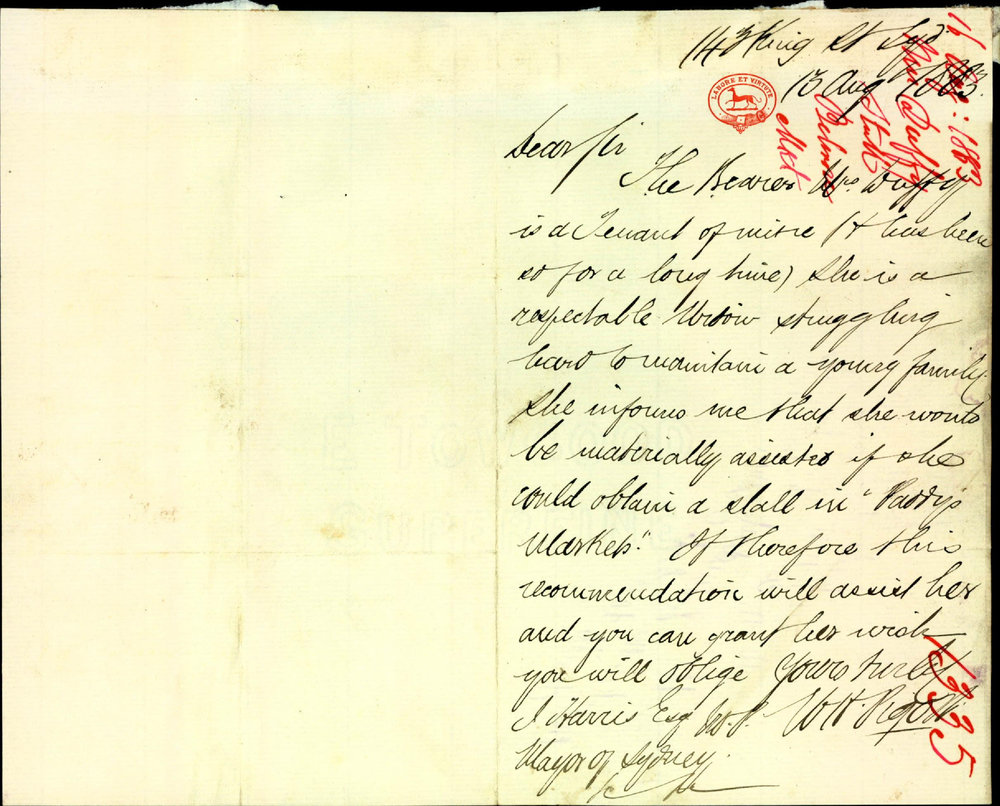 143 King St Syd
13 Aug 1883.
LABORE ET VIRTUTE
16 1883
Mrs Duffy
Stall
Belmore
Mkt
Dear Sir
The Bearer Mrs Duffy
is a Tenant of mine (& has been
so for a long time) She is a
respectable Widow struggling
hard to maintain a young family.
She informs me that she would
be materially assisted if she
could obtain a stall in "Paddys
Markets". If therefore this
recommendation will assist her
and you can grant her wish
you will oblige Yours truly
J Harris Esq M.P. W H
Mayor of Sydney.
1335